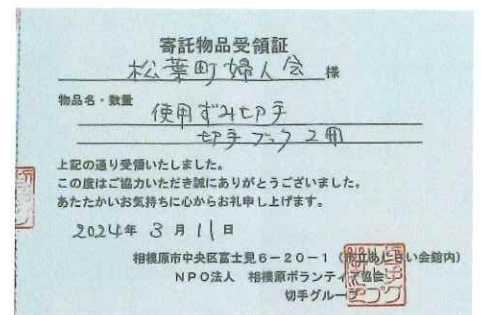 寄託物品受領証
松葉町婦人会 様
物品名・数量
使用ずみ切手
切手ブック 2冊
上記の通り受領いたしました。
この度はご協力いただき誠にありがとうございました。
あたたかいお気持ちに心からお礼申し上げます。
2024年 3月11日
相模原市中央区富士見6-20-1(市立あじさい会館内)
NPO法人 相模原ボランティア協会
切手グループ